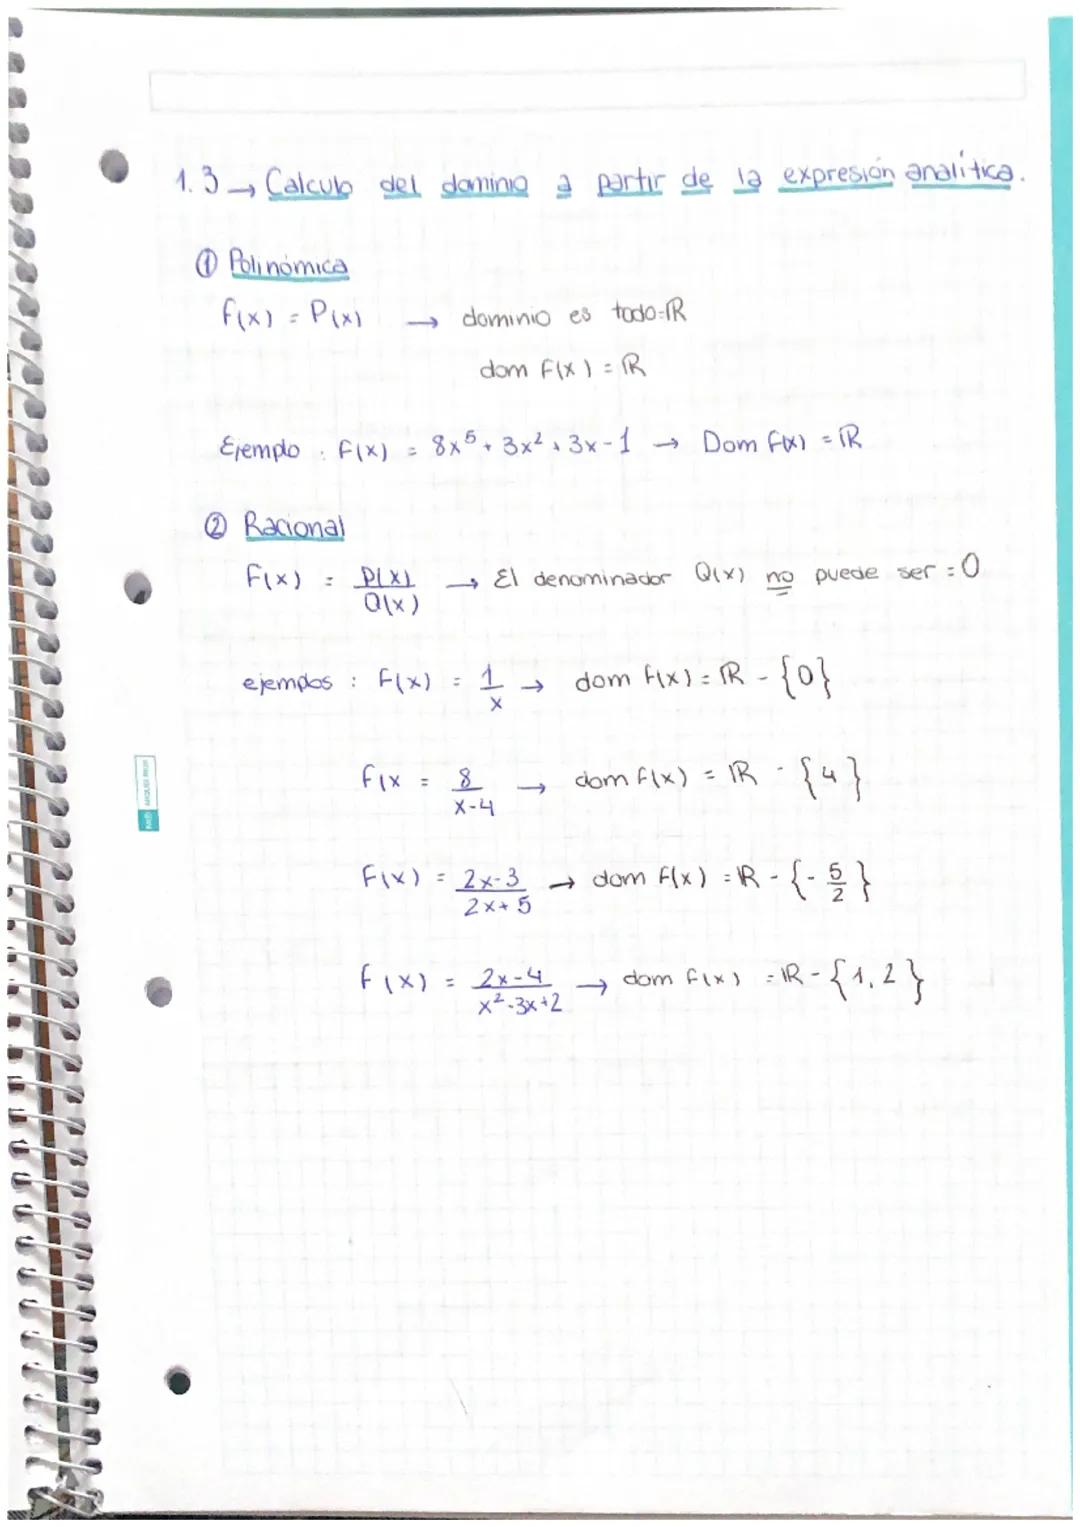 1.3 → Calculo del dominio a partir de la expresión analítica.
① Polinómica
f(x) = P(x) → dominio es todo=ℝ
dom F(x) = ℝ
Ejemplo : F(x) = 8x⁵+3x²+3x-1 → Dom F(x) = ℝ
② Racional
F(x) = P(x)/Q(x) → El denominador Q(x) no puede ser = 0
ejemplos : F(x) = 1/x → dom F(x) = ℝ - {0}
F(x = 8/x-4 → dom f(x) = ℝ - {4}
F(x) = 2x-3/2x+5 → dom F(x) = ℝ - {-5/2}
F(x) = 2x-4/x²-3x+2 → dom F(x) = ℝ - {1,2}